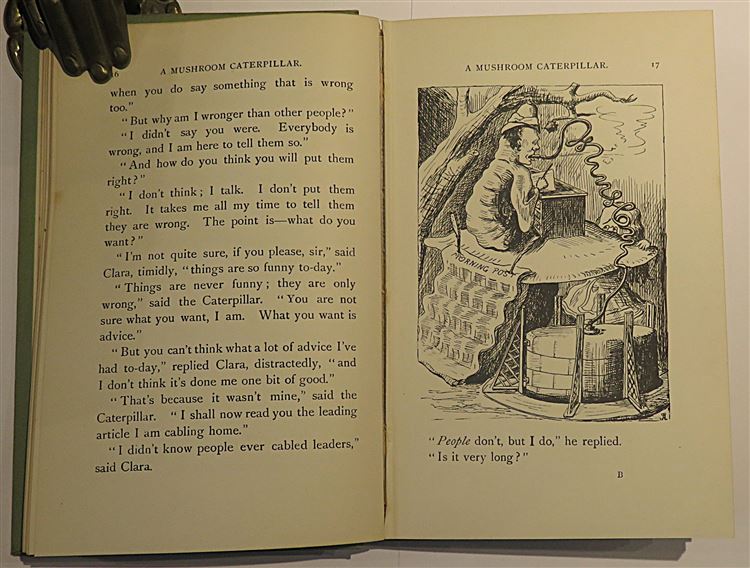 16 A MUSHROOM CATERPILLAR.
when you do say something that is wrong
too."
"But why am I wronger than other people?"
"I didn't say you were. Everybody is
wrong, and I am here to tell them so."
"And how do you think you will put them
right?"
"I don't think; I talk. I don't put them
right. It takes me all my time to tell them
they are wrong. The point is—what do you
want?"
"I'm not quite sure, if you please, sir," said
Clara, timidly, "things are so funny to-day."
"Things are never funny; they are only
wrong," said the Caterpillar. "You are not
sure what you want, I am. What you want is
advice."
"But you can't think what a lot of advice I've
had to-day," replied Clara, distractedly, "and
I don't think it's done me one bit of good."
"That's because it wasn't mine," said the
Caterpillar. "I shall now read you the leading
article I am cabling home."
"I didn't know people ever cabled leaders,"
said Clara.
A MUSHROOM CATERPILLAR. 17
MORNING POST
"People don't, but I do," he replied.
"Is it very long?"
B